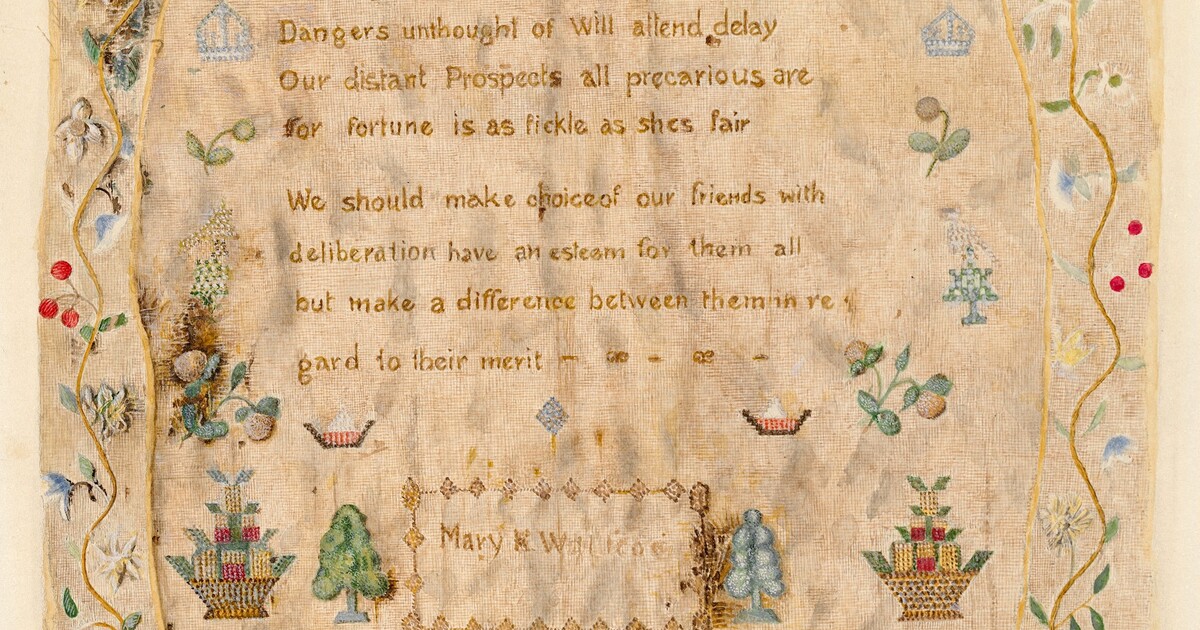 Dangers unthought of Will attend delay
Our distant Prospects all precarious are
for fortune is as fickle as shes fair
We should make choice of our friends with
deliberation have an esteem for them all
but make a difference between them in re
gard to their merit – æ – æ –
Mary K